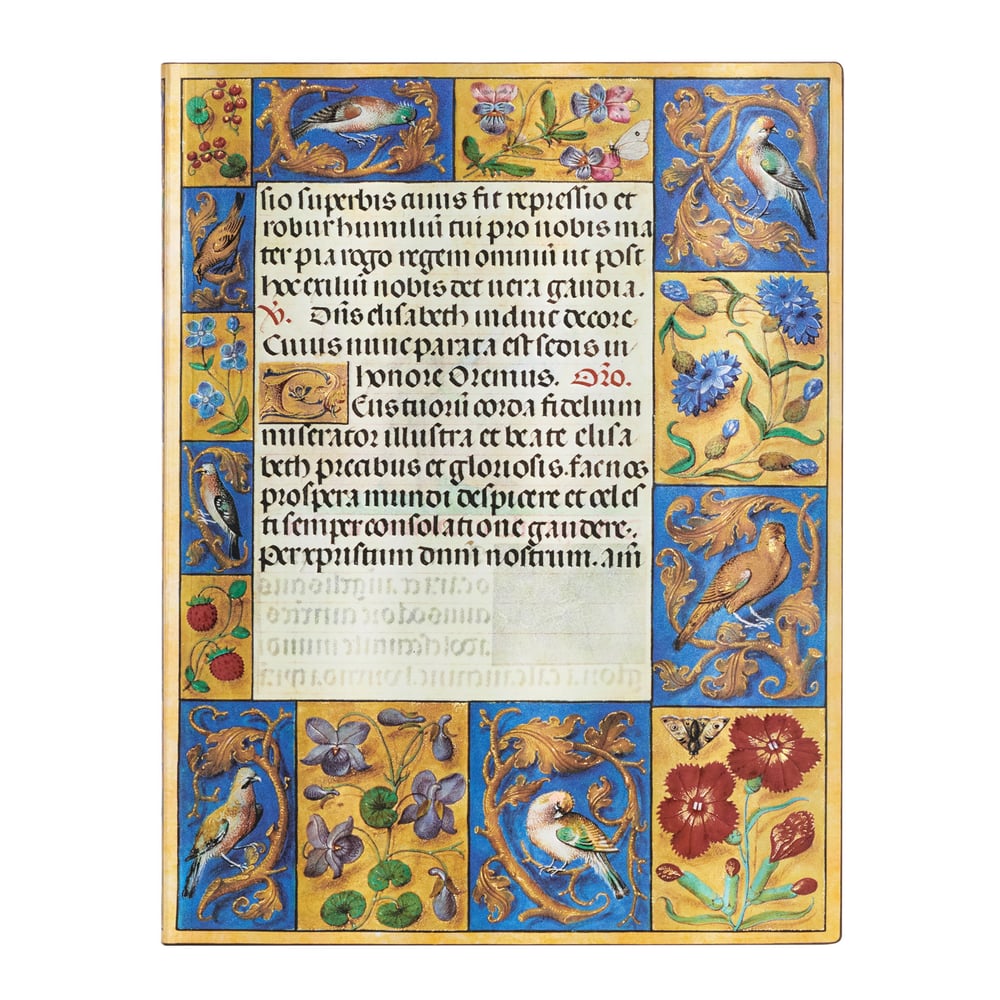 sio superbis cuius fit repressio et
robur humiliũ tui pro nobis ma
ter pia rogo regem omniũ ut post
hoc exiliũ nobis det uera gaudia.
V. Dñs elisabeth induit decore
Cuius nunc parata est sedis in
honore Oremus. Orõ.
Deus tuorũ corda fidelium
miserator illustra et beate elisa
beth precibus et gloriosis. fac nos
prospera mundi despicere et celes
ti semper consolatione gaudere.
Per xpristum dnm̃ nostrum. am̃